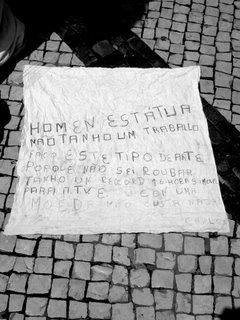 HOMEN ESTÁTUA
NÃO TANHO UM TRABALLO
FAÇO ESTE TIPO DE ARTE
PORQUE NÃO SEI ROUBAR
TANHO UM RECORD 16 HORA SI
PARA A TV E COM UMA
MOEDA NÃO CUSTA NADA